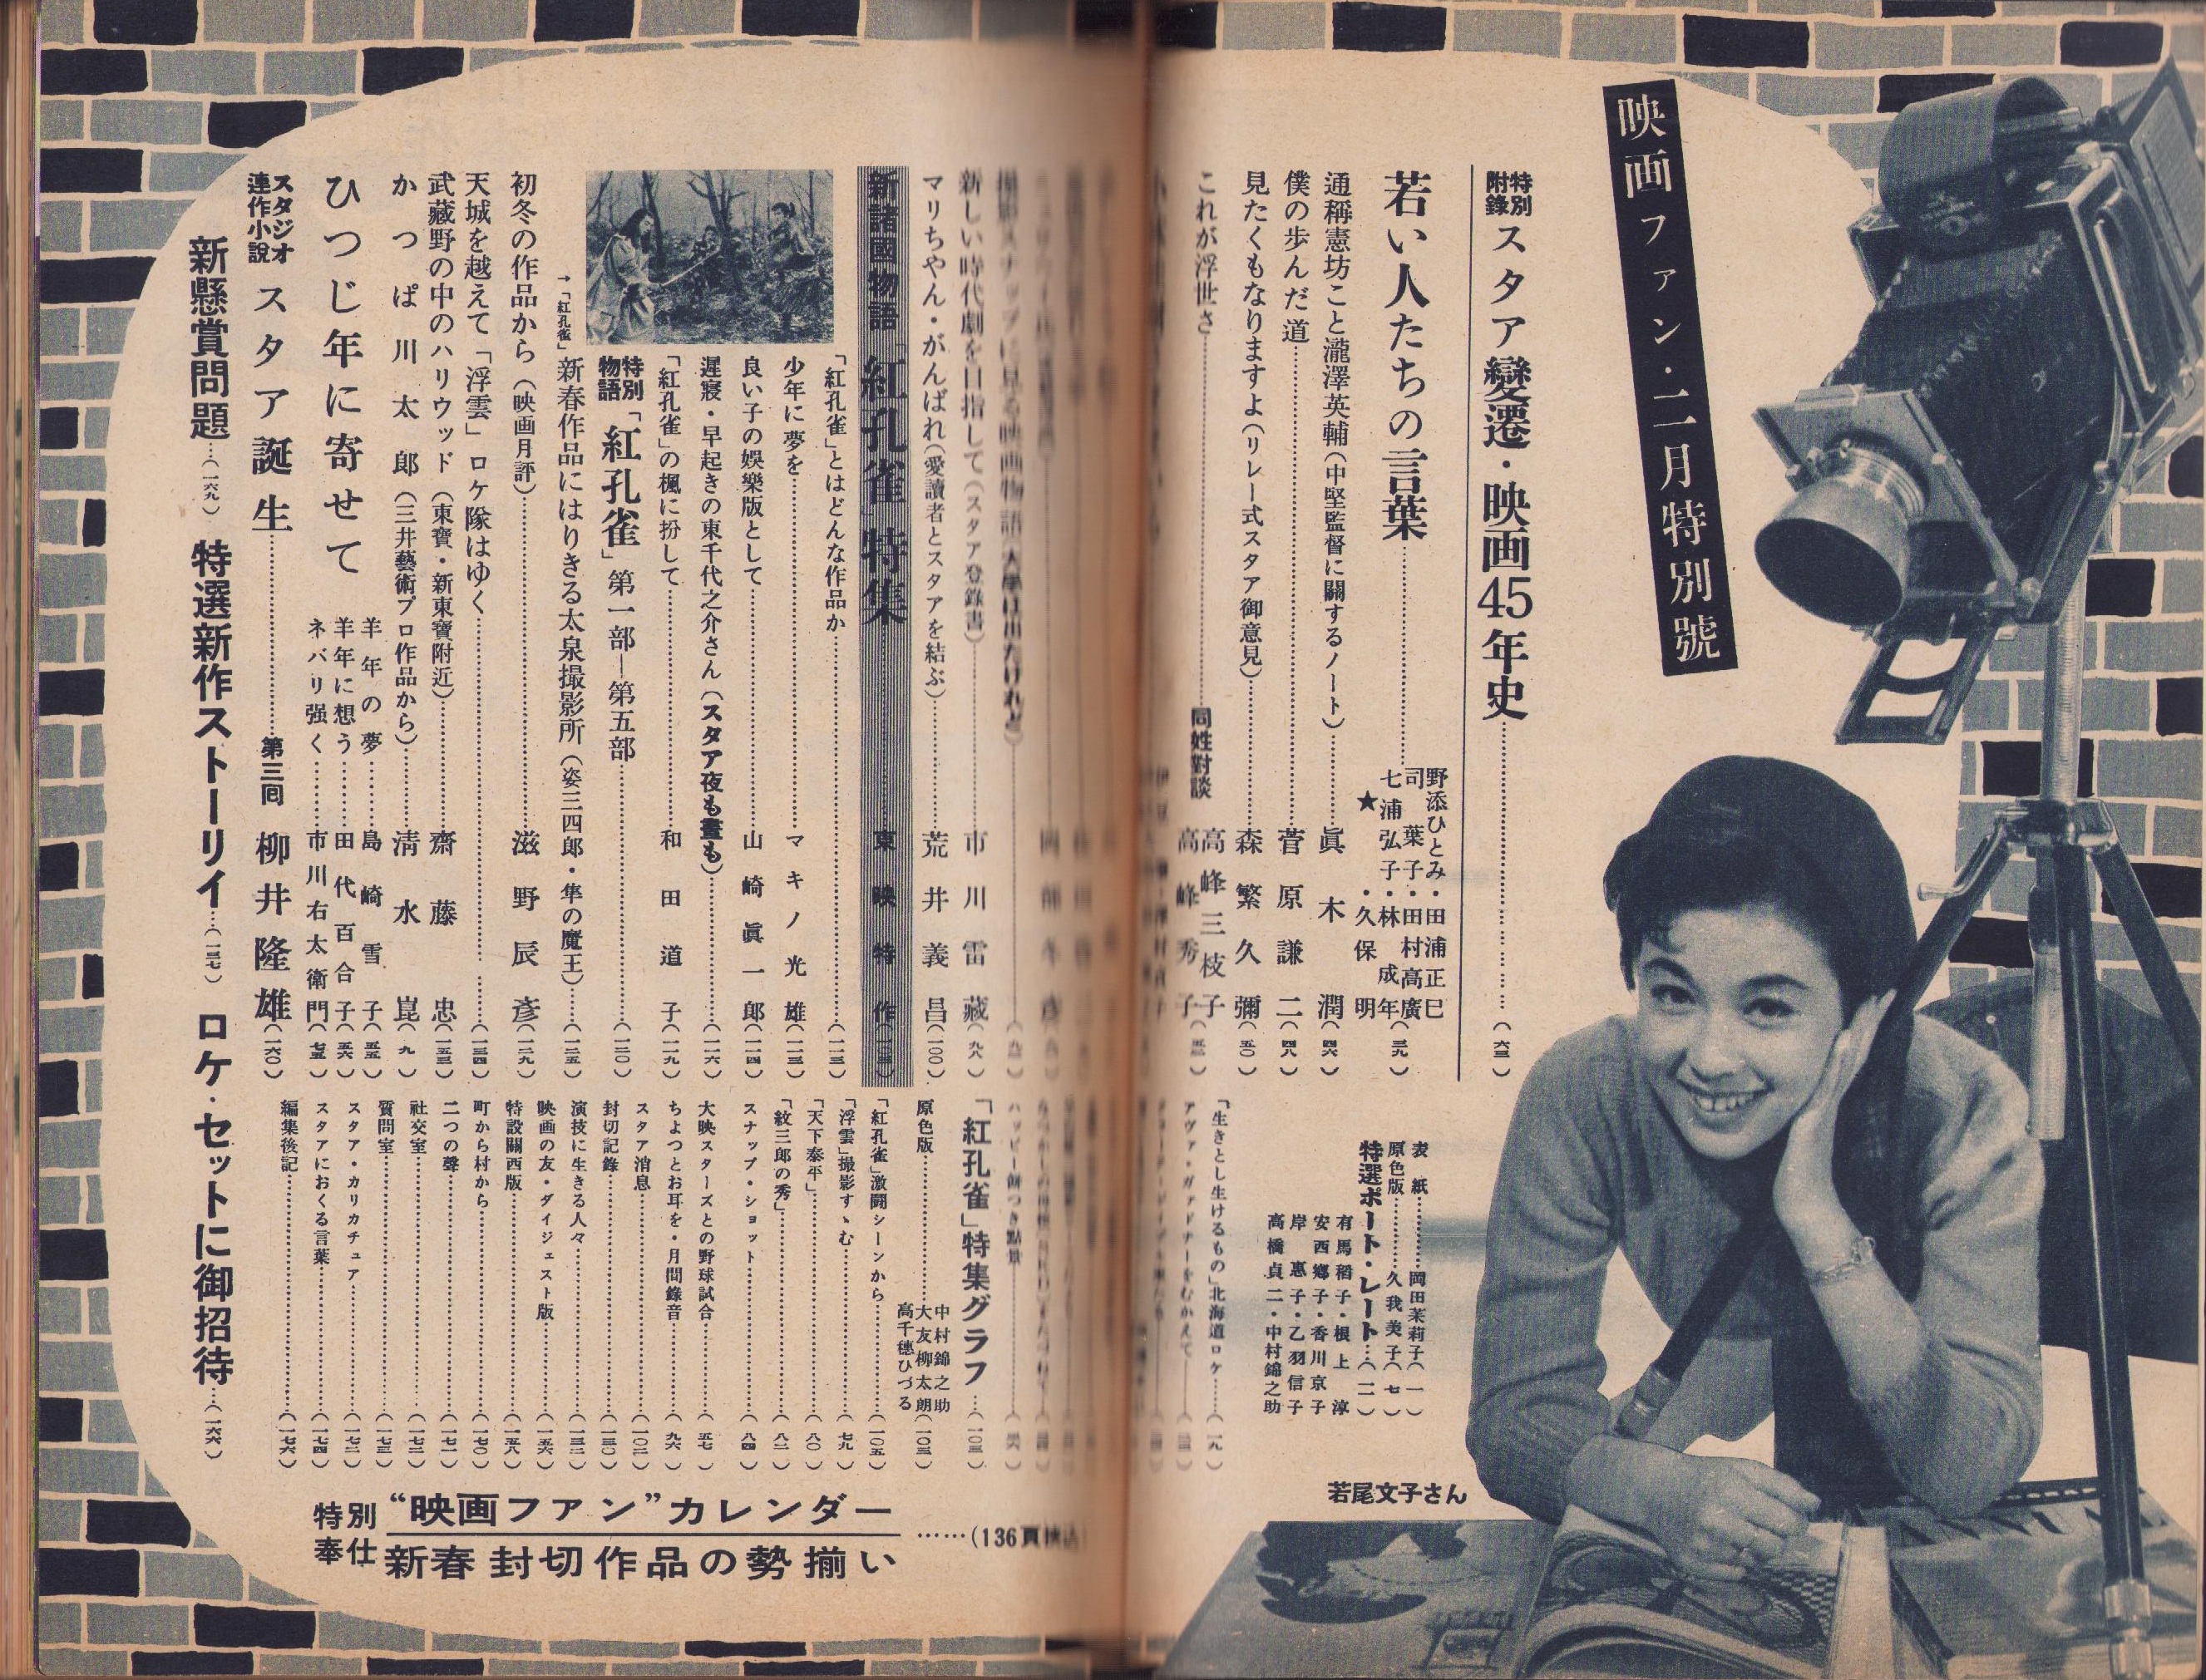 映画ファン・二月特別號
特別附錄 スタア變遷・映画45年史………(六三)
若い人たちの言葉………野添ひとみ・田浦正巳 司葉子・田村高廣 七浦弘子・林成年 ★・久保明(三九)
通稱憲坊こと瀧澤英輔(中堅監督に關するノート)………眞木潤(四六)
僕の歩んだ道………菅原謙二(四八)
見たくもなりますよ(リレー式スタア御意見)………森繁久彌(五〇)
これが浮世さ………同姓對談 高峰三枝子 高峰秀子
新しい時代劇を目指して(スタア登錄書)………市川雷藏(九八)
マリちやん・がんばれ(愛讀者とスタアを結ぶ)………荒井義昌(一〇〇)
新諸國物語「紅孔雀」特集………東映特作
「紅孔雀」とはどんな作品か………(一一三)
少年に夢を………マキノ光雄(一二三)
良い子の娯樂版として………山崎眞一郎(一二四)
遅寢・早起きの東千代之介さん(スタア夜も晝も)………(一二六)
「紅孔雀」の楓に扮して………和田道子(一二九)
特別物語「紅孔雀」第一部—第五部………(一二〇)
→「紅孔雀」
新春作品にはりきる太泉撮影所(姿三四郎・隼の魔王)……(一三五)
初冬の作品から(映画月評)………滋野辰彦(一二九)
天城を越えて「浮雲」ロケ隊はゆく………(一三四)
武藏野の中のハリウッド(東寶・新東寶附近)………齋藤忠(一五三)
かつぱ川太郎(三井藝術プロ作品から)………淸水崑(九一)
ひつじ年に寄せて
羊年の夢………島崎雪子(五五)
羊年に想う………田代百合子(五六)
ネバリ強く………市川右太衛門(七五)
スタジオ連作小說 スタア誕生………第三回 柳井隆雄(一六〇)
新懸賞問題…(一六九) 特選新作ストーリイ…(一三七) ロケ・セットに御招待…(一六六)
表紙………岡田茉莉子(一)
原色版………久我美子(七)
特選ポート・レート…(一一)
有馬稻子・根上淳
安西郷子・香川京子
岸惠子・乙羽信子
高橋貞二・中村錦之助
「生きとし生けるもの」北海道ロケ……(一九)
アヴァ・ガァドナーをむかえて
「紅孔雀」特集グラフ…(一〇三)
原色版………中村錦之助 大友柳太朗 高千穂ひづる(一〇三)
「紅孔雀」激闘シーンから………(一〇五)
「浮雲」撮影すゝむ………(七九)
「天下泰平」………(八〇)
「紋三郎の秀」………(八二)
スナップ・ショット………(八四)
大映スターズとの野球試合………(五七)
ちよつとお耳を・月間錄音………(九六)
スタア消息………(一〇二)
封切記錄………(一三〇)
演技に生きる人々………(一三二)
映画の友・ダイジェスト版………(一五六)
特設關西版………(一五八)
町から村から………(一七〇)
二つの聲………(一七一)
社交室………(一七二)
質問室………(一七三)
スタア・カリカチュア………(一七三)
スタアにおくる言葉………(一七四)
編集後記………(一七六)
若尾文子さん
特別奉仕 “映画ファン”カレンダー
新春封切作品の勢揃い ……(136頁